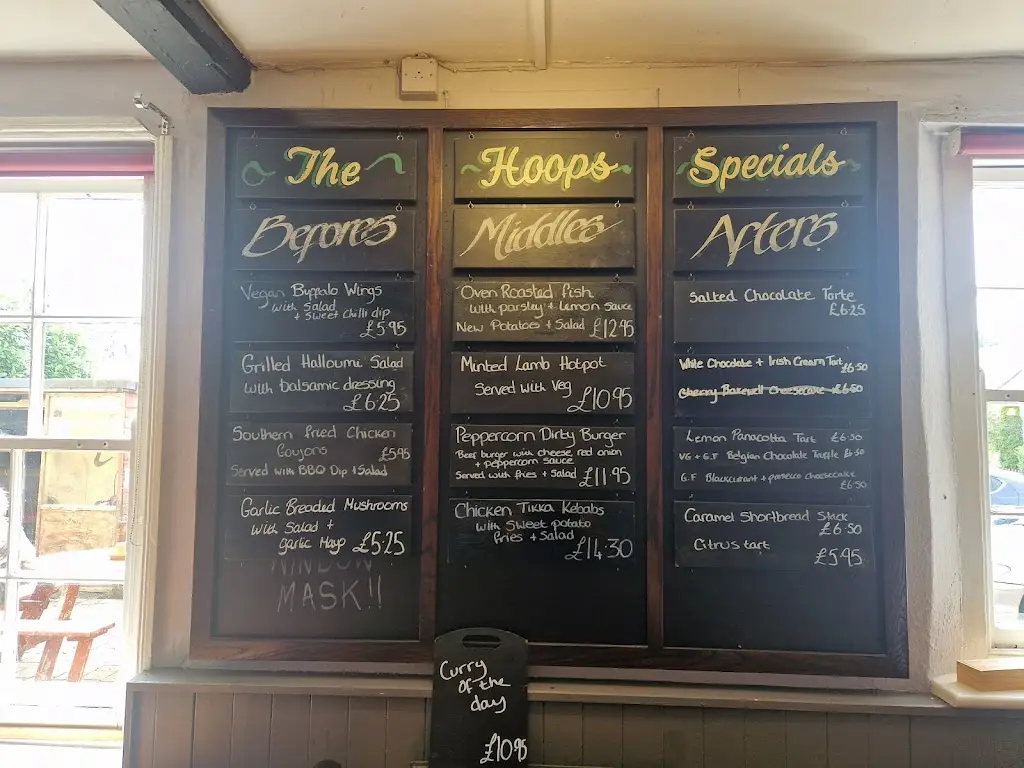 The Hoops Specials
Befores
Vegan Buffalo Wings
with Salad
+ Sweet Chilli dip
£5.95
Grilled Halloumi Salad
with balsamic dressing
£6.25
Southern fried Chicken
Goujons £5.95
Served with BBQ Dip + Salad
Garlic Breaded Mushrooms
with Salad +
garlic Mayo £5.25
WINDOW
MASK!!
Middles
Oven Roasted fish
with parsley + Lemon sauce
New Potatoes + Salad £12.95
Minted Lamb Hotpot
Served with Veg
£10.95
Peppercorn Dirty Burger
Beef burger with cheese, red onion
+ peppercorn sauce
Served with fries + Salad £11.95
Chicken Tikka Kebabs
with Sweet potato
fries + Salad
£14.30
Afters
Salted Chocolate Torte
£6.25
White Chocolate + Irish Cream Tart £6.50
Cherry Bakewell Cheesecake £6.50
Lemon Panacotta Tart £6.50
VG + G.F Belgian Chocolate Truffle £6.50
G.F Blackcurrant + prosecco cheesecake
£6.50
Caramel Shortbread Stack
£6.50
Citrus tart
£5.95
Curry
of the
day
£10.95